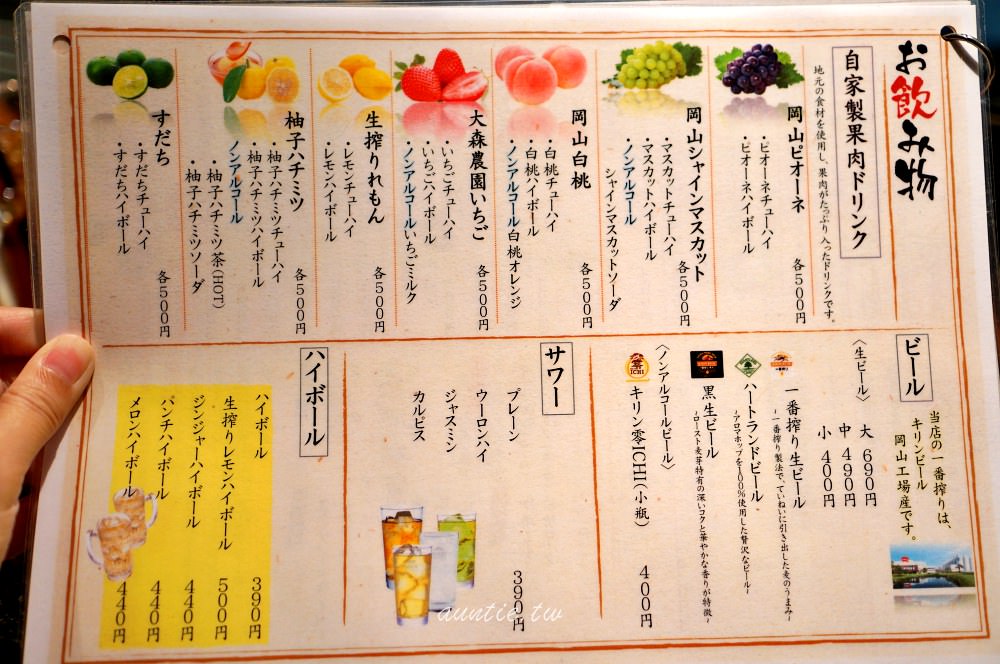 お飲み物
自家製果肉ドリンク
地元の食材を使用し、果肉がたっぷり入ったドリンクです。
岡山ピオーネ 各500円
・ピオーネチューハイ
・ピオーネハイボール
岡山シャインマスカット 各500円
・マスカットチューハイ
・マスカットハイボール
・ノンアルコール
シャインマスカットソーダ
岡山白桃 各500円
・白桃チューハイ
・白桃ハイボール
・ノンアルコール白桃オレンジ
大森農園いちご 各500円
・いちごチューハイ
・いちごハイボール
・ノンアルコールいちごミルク
生搾りれもん 各500円
・レモンチューハイ
・レモンハイボール
柚子ハチミツ 各500円
・柚子ハチミツチューハイ
・柚子ハチミツハイボール
ノンアルコール
・柚子ハチミツ茶(HOT)
・柚子ハチミツソーダ
すだち 各500円
・すだちチューハイ
・すだちハイボール
ビール
当店の一番搾りは、
キリンビール
岡山工場産です。
〈生ビール〉
大 690円
中 490円
小 400円
一番搾り生ビール
~一番搾り製法で、ていねいに引き出した麦のうまみ~
ハートランドビール
~アロマホップを100%使用した贅沢なビール~
黒生ビール
~ロースト麦芽特有の深いコクと華やかな香りが特徴~
〈ノンアルコールビール〉
零ICHI
キリン零ICHI(小瓶) 400円
サワー
プレーン
ウーロンハイ
ジャスミン
カルピス
390円
ハイボール
ハイボール 390円
生搾りレモンハイボール 500円
ジンジャーハイボール 440円
パンチハイボール 440円
メロンハイボール 440円
auntie.tw